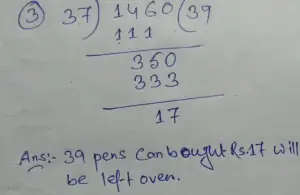 ③ 37) 1460 (39
111
350
333
17
Ans:- 39 pens Can bought Rs.17 will
be left over.